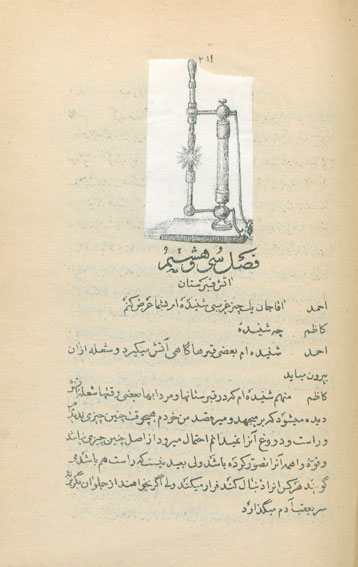 ۲۱۱
فصل سی و هشتم
آتش قبرستان
احمد آقاجان یک چیز غریبی شنیده‌ام بشما عرض کنم
کاظم چه شنیده
احمد شنیده‌ام بعضی قبرها گاهی آتش میگیرد و شعله از آن
بیرون میاید
کاظم منهم شنیده‌ام که در قبرستانها و مردابها بعضی وقتها شعله آتش
دیده میشود که بر میجهد و میرقصد من خودم هیچوقت چنین چیزی ندیدم
و راست و دروغ آنرا نمیدانم احتمال میرود از اصل چنین چیزی نباشد
و قوه واهمه آنرا تصور کرده باشد ولی بعید نیست که راست هم باشد
گویند هر کس از دنبال کند فرار میکند و اگر بخواهند از جلو آن بگریزند
سر بعقب آدم میگذارد